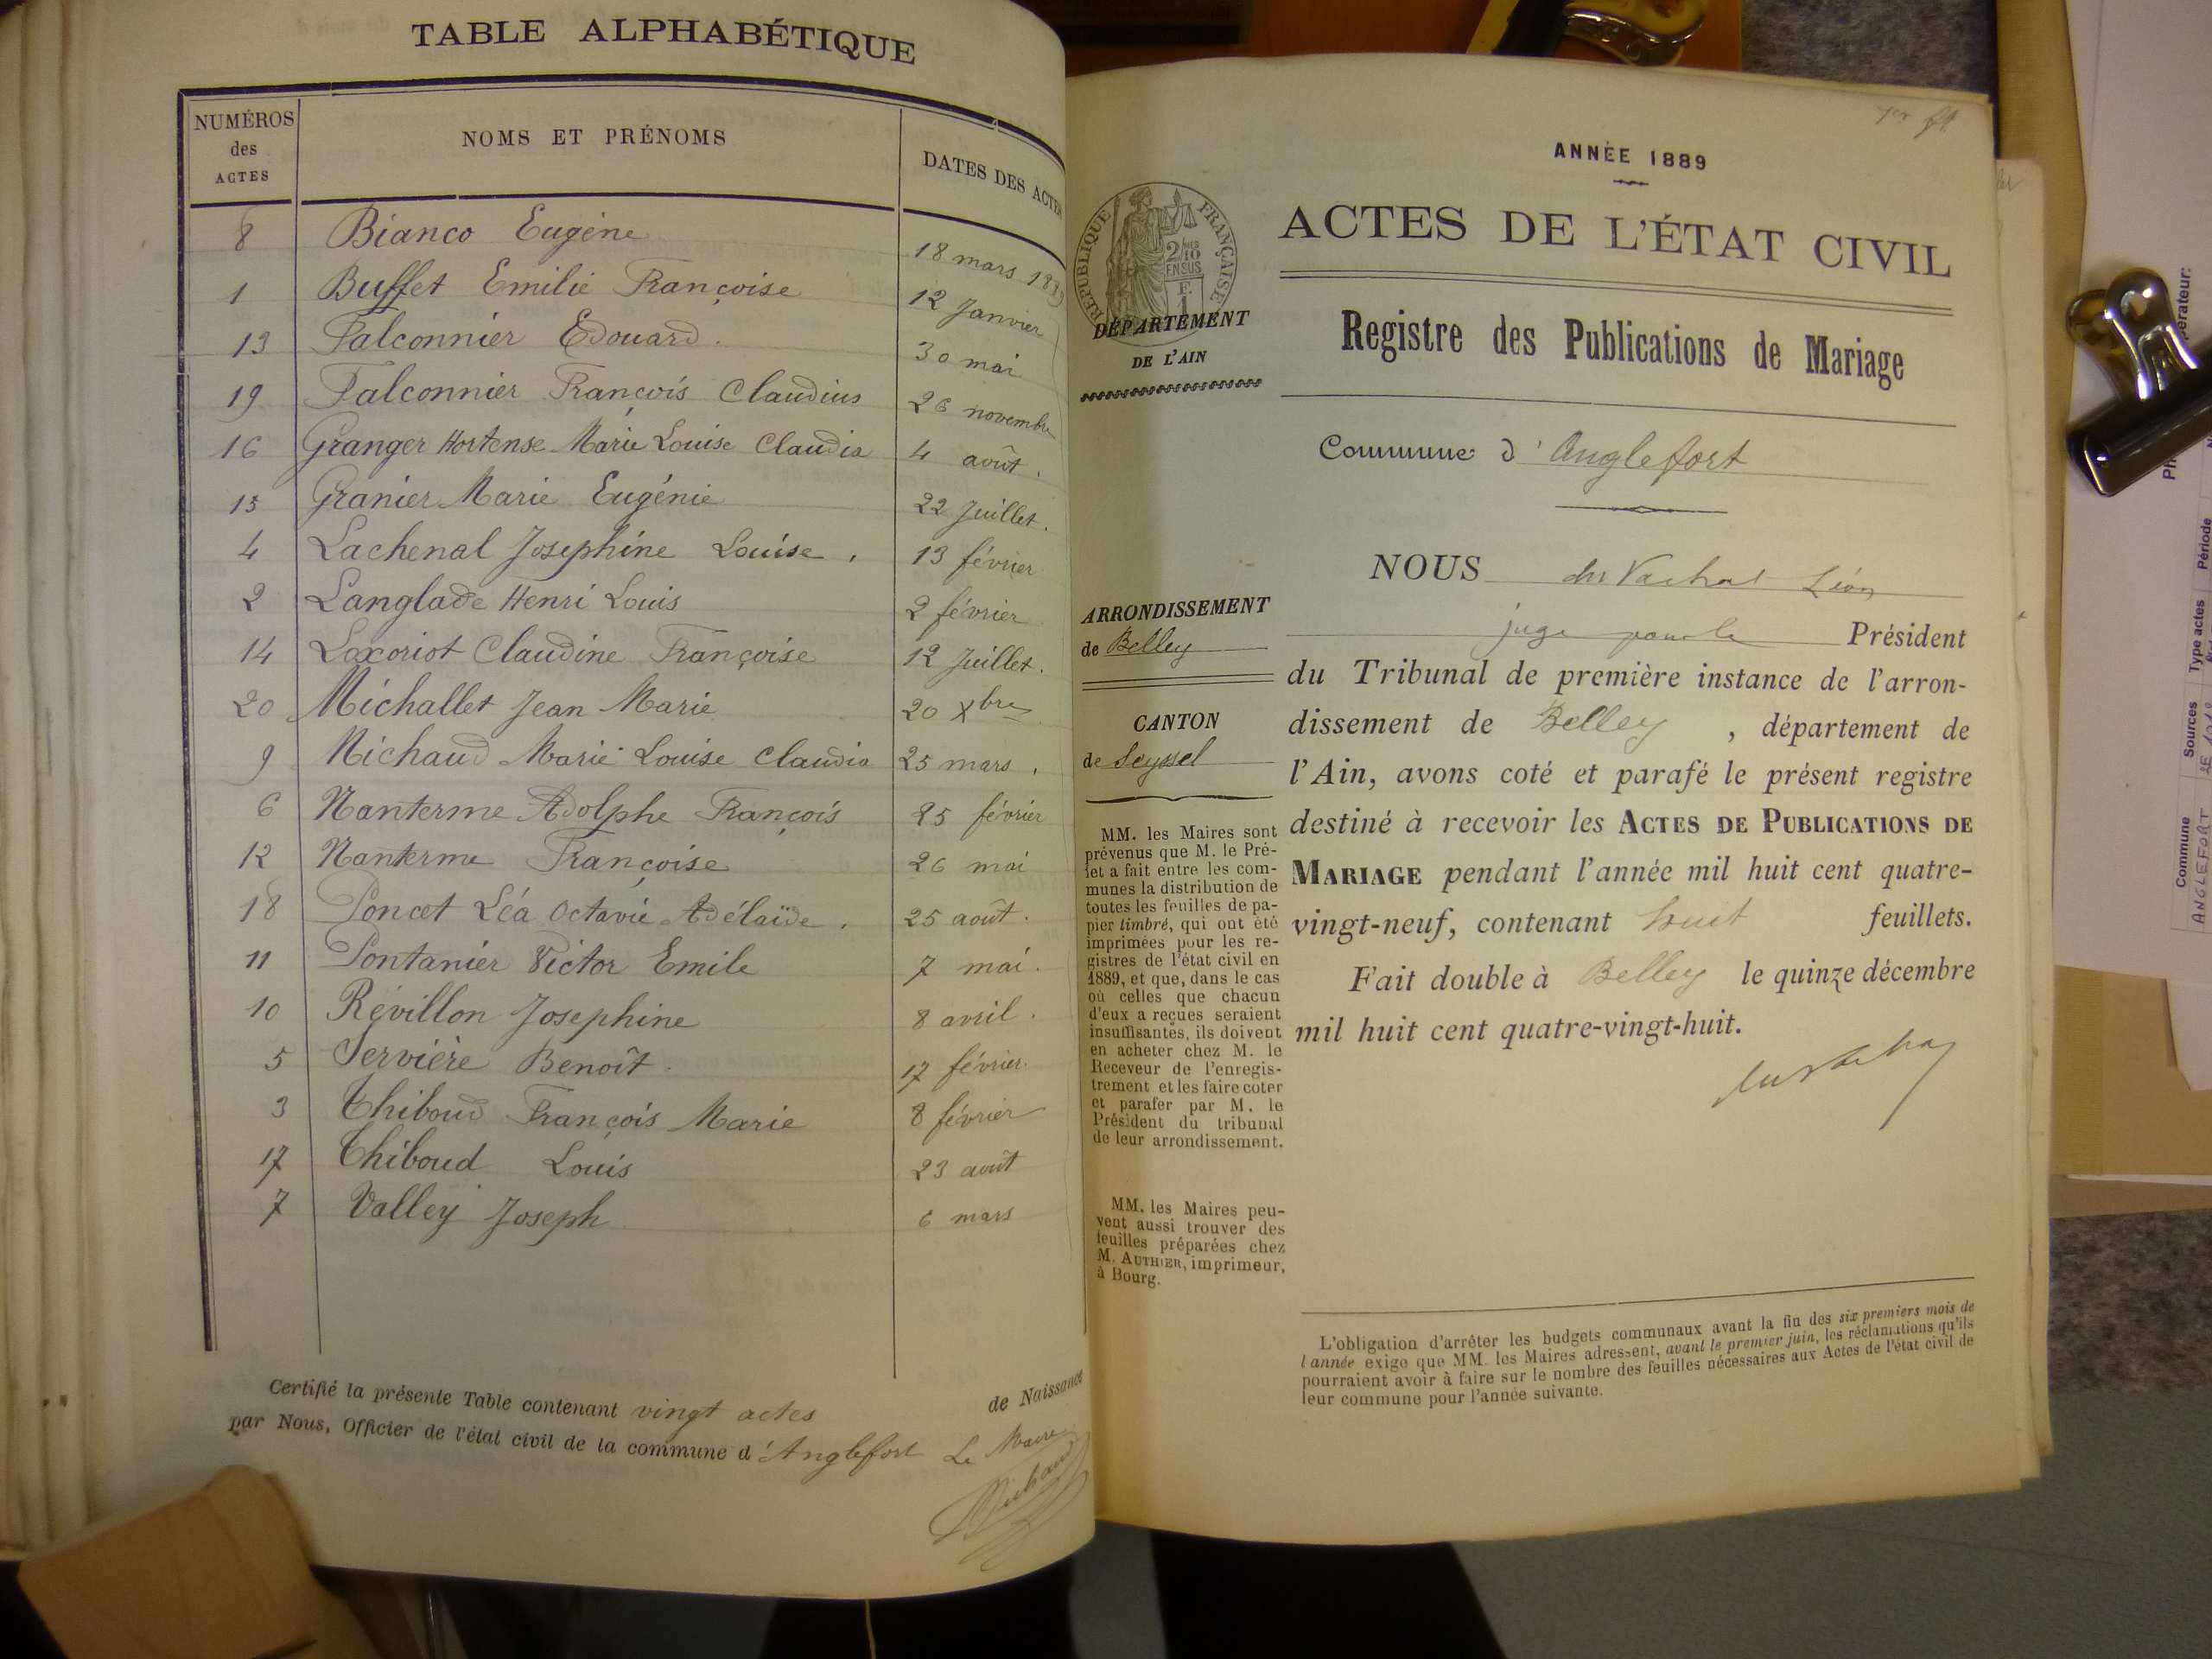 TABLE ALPHABÉTIQUE
NUMÉROS des ACTES NOMS ET PRÉNOMS DATES DES ACTES
8 Bianco Eugéne 18 mars
1 Buffet Emilie Françoise 12 Janvier
13 Falconnier Edouard. 30 mai
19 Falconnier François Claudius 26 novembre
16 Granger Hortense Marie Louise Claudia 4 août.
15 Granier Marie Eugénie 22 Juillet.
4 Lachenal Josephine Louise. 13 février
2 Langlade Henri Louis 2 février
14 Loxoriot Claudine Françoise 12 Juillet.
20 Michallet Jean Marie 20 Xbre
9 Michaud Marie Louise Claudia 25 mars.
6 Nanterme Adolphe François 25 février
12 Nanterme Françoise 26 mai
18 Poncet Léa Octavie Adélaïde. 25 août.
11 Pontanier Victor Emile 7 mai.
10 Révillon Josephine 8 avril.
5 Servière Benoît. 17 février.
3 Thiboud François Marie 8 février
17 Thiboud Louis 23 août
7 Valley Joseph 6 mars
Certifié la présente Table contenant vingt actes de Naissance
par Nous, Officier de l'état civil de la commune d'Anglefort Le Maire
Michaud
1er ft
ANNÉE 1889
RÉPUBLIQUE FRANÇAISE
2/10
EN SUS
DÉPARTEMENT
DE L'AIN
ACTES DE L'ÉTAT CIVIL
Registre des Publications de Mariage
Commune d'Anglefort
ARRONDISSEMENT
de Belley
CANTON
de Seyssel
MM. les Maires sont
prévenus que M. le Pré-
fet a fait entre les com-
munes la distribution de
toutes les feuilles de pa-
pier timbré, qui ont été
imprimées pour les re-
gistres de l'état civil en
1889, et que, dans le cas
où celles que chacun
d'eux a reçues seraient
insuffisantes, ils doivent
en acheter chez M. le
Receveur de l'enregis-
trement et les faire coter
et parafer par M. le
Président du tribunal
de leur arrondissement.
MM. les Maires peu-
vent aussi trouver des
feuilles préparées chez
M. AUTHIER, imprimeur,
à Bourg.
NOUS du Vachat Léon
juge pour le Président
du Tribunal de première instance de l'arron-
dissement de Belley, département de
l'Ain, avons coté et parafé le présent registre
destiné à recevoir les ACTES DE PUBLICATIONS DE
MARIAGE pendant l'année mil huit cent quatre-
vingt-neuf, contenant huit feuillets.
Fait double à Belley le quinze décembre
mil huit cent quatre-vingt-huit.
L'obligation d'arrêter les budgets communaux avant la fin des six premiers mois de
l'année exige que MM. les Maires adressent, avant le premier juin, les réclamations qu'ils
pourraient avoir à faire sur le nombre des feuilles nécessaires aux Actes de l'état civil de
leur commune pour l'année suivante.
Commune Sources Type actes Période
ANGLEFORT